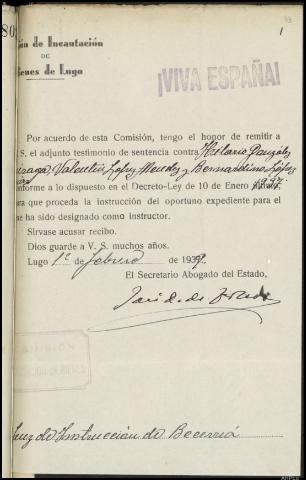 80
1
ón de Incautación
DE
ienes de Lugo
¡VIVA ESPAÑA!
Por acuerdo de esta Comisión, tengo el honor de remitir a
.S. el adjunto testimonio de sentencia contra Hilario González
Valentín López Mendez y Bernardino López
nforme a lo dispuesto en el Decreto-Ley de 10 de Enero 1937
ara que proceda la instrucción del oportuno expediente para el
e ha sido designado como instructor.
Sírvase acusar recibo.
Dios guarde a V. S. muchos años.
Lugo 1º de febrero de 1939.
El Secretario Abogado del Estado,
Juez de Instrucción de Becerreá